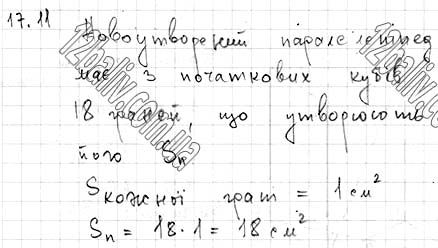 17.11
Новоутворений паралелепіпед
має з початкових кубів
18 граней, що утворюють
його Sп
Sкожної грані = 1 см²
Sп = 18 · 1 = 18 см²
12baliv.com.ua
12baliv.com.ua